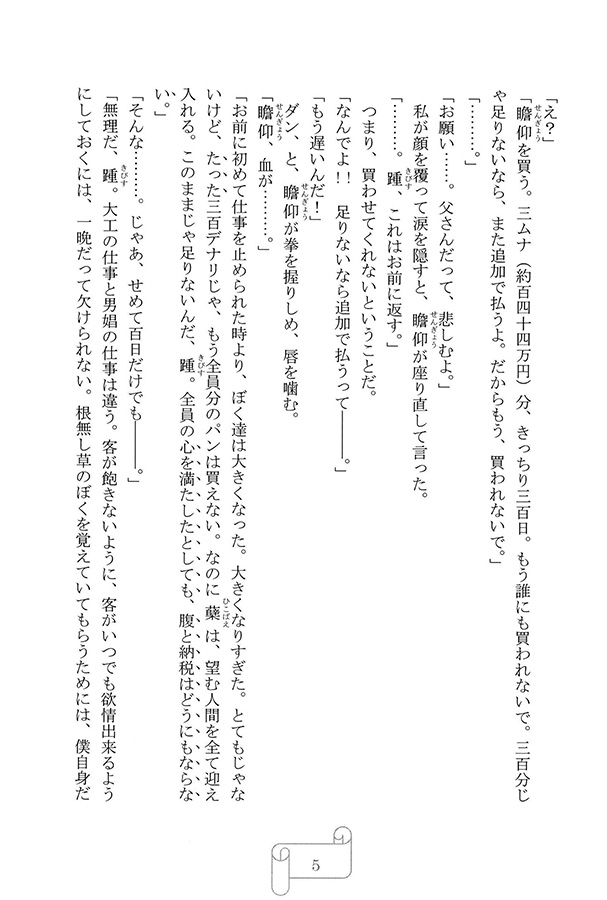 「え？」
「瞻仰を買う。三ムナ（約百四十四万円）分、きっちり三百日。もう誰にも買われないで。三百分じ
ゃ足りないなら、また追加で払うよ。だからもう、買われないで。」
「………。」
「お願い……。父さんだって、悲しむよ。」
私が顔を覆って涙を隠すと、瞻仰が座り直して言った。
「………。踵、これはお前に返す。」
つまり、買わせてくれないということだ。
「なんでよ!! 足りないなら追加で払うって――。」
「もう遅いんだ！」
ダン、と、瞻仰が拳を握りしめ、唇を噛む。
「瞻仰、血が………。」
「お前に初めて仕事を止められた時より、ぼく達は大きくなった。大きくなりすぎた。とてもじゃな
いけど、たった三百デナリじゃ、もう全員分のパンは買えない。なのに蘖は、望む人間を全て迎え
入れる。このままじゃ足りないんだ、踵。全員の心を満たしたとしても、腹と納税はどうにもならな
い。」
「そんな………。じゃあ、せめて百日だけでも――。」
「無理だ、踵。大工の仕事と男娼の仕事は違う。客が飽きないように、客がいつでも欲情出来るよう
にしておくには、一晩だって欠けられない。根無し草のぼくを覚えていてもらうためには、僕自身だ
5